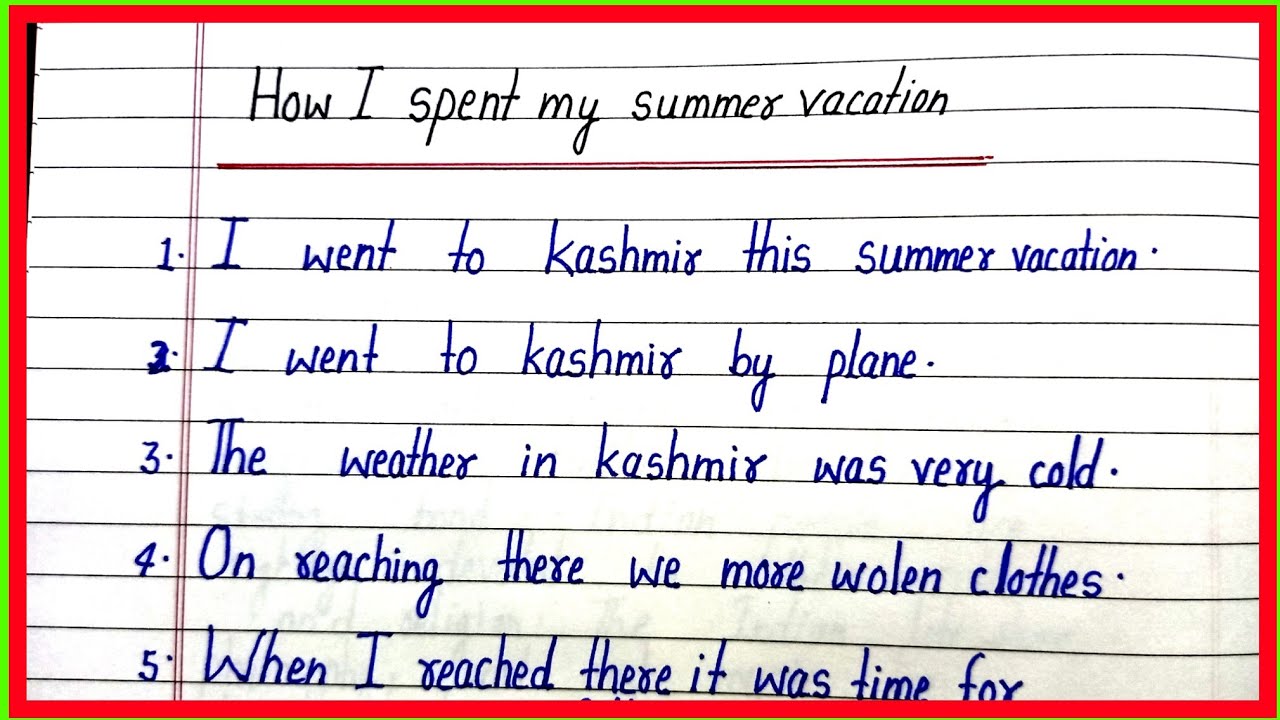 How I spent my summer vacation
1. I went to kashmir this summer vacation.
2. I went to kashmir by plane.
3. The weather in kashmir was very cold.
4. On reaching there we more wolen clothes.
5. When I reached there it was time for